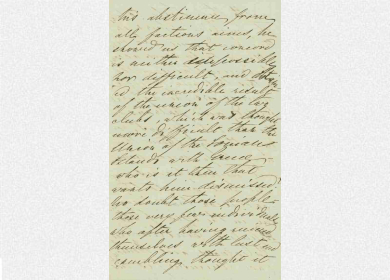 his abstinence from
all factious aims, he
showed us that concord
is neither impossible
nor difficult, and
is the incredible result
of the union of the
clubs, which was thought
more difficult than the
Union of the Ionian
Islands with Greece
who is it then that
wants him dismissed?
No doubt those people
those very few individuals
who after having ruined
themselves with lust and
gambling, thought it